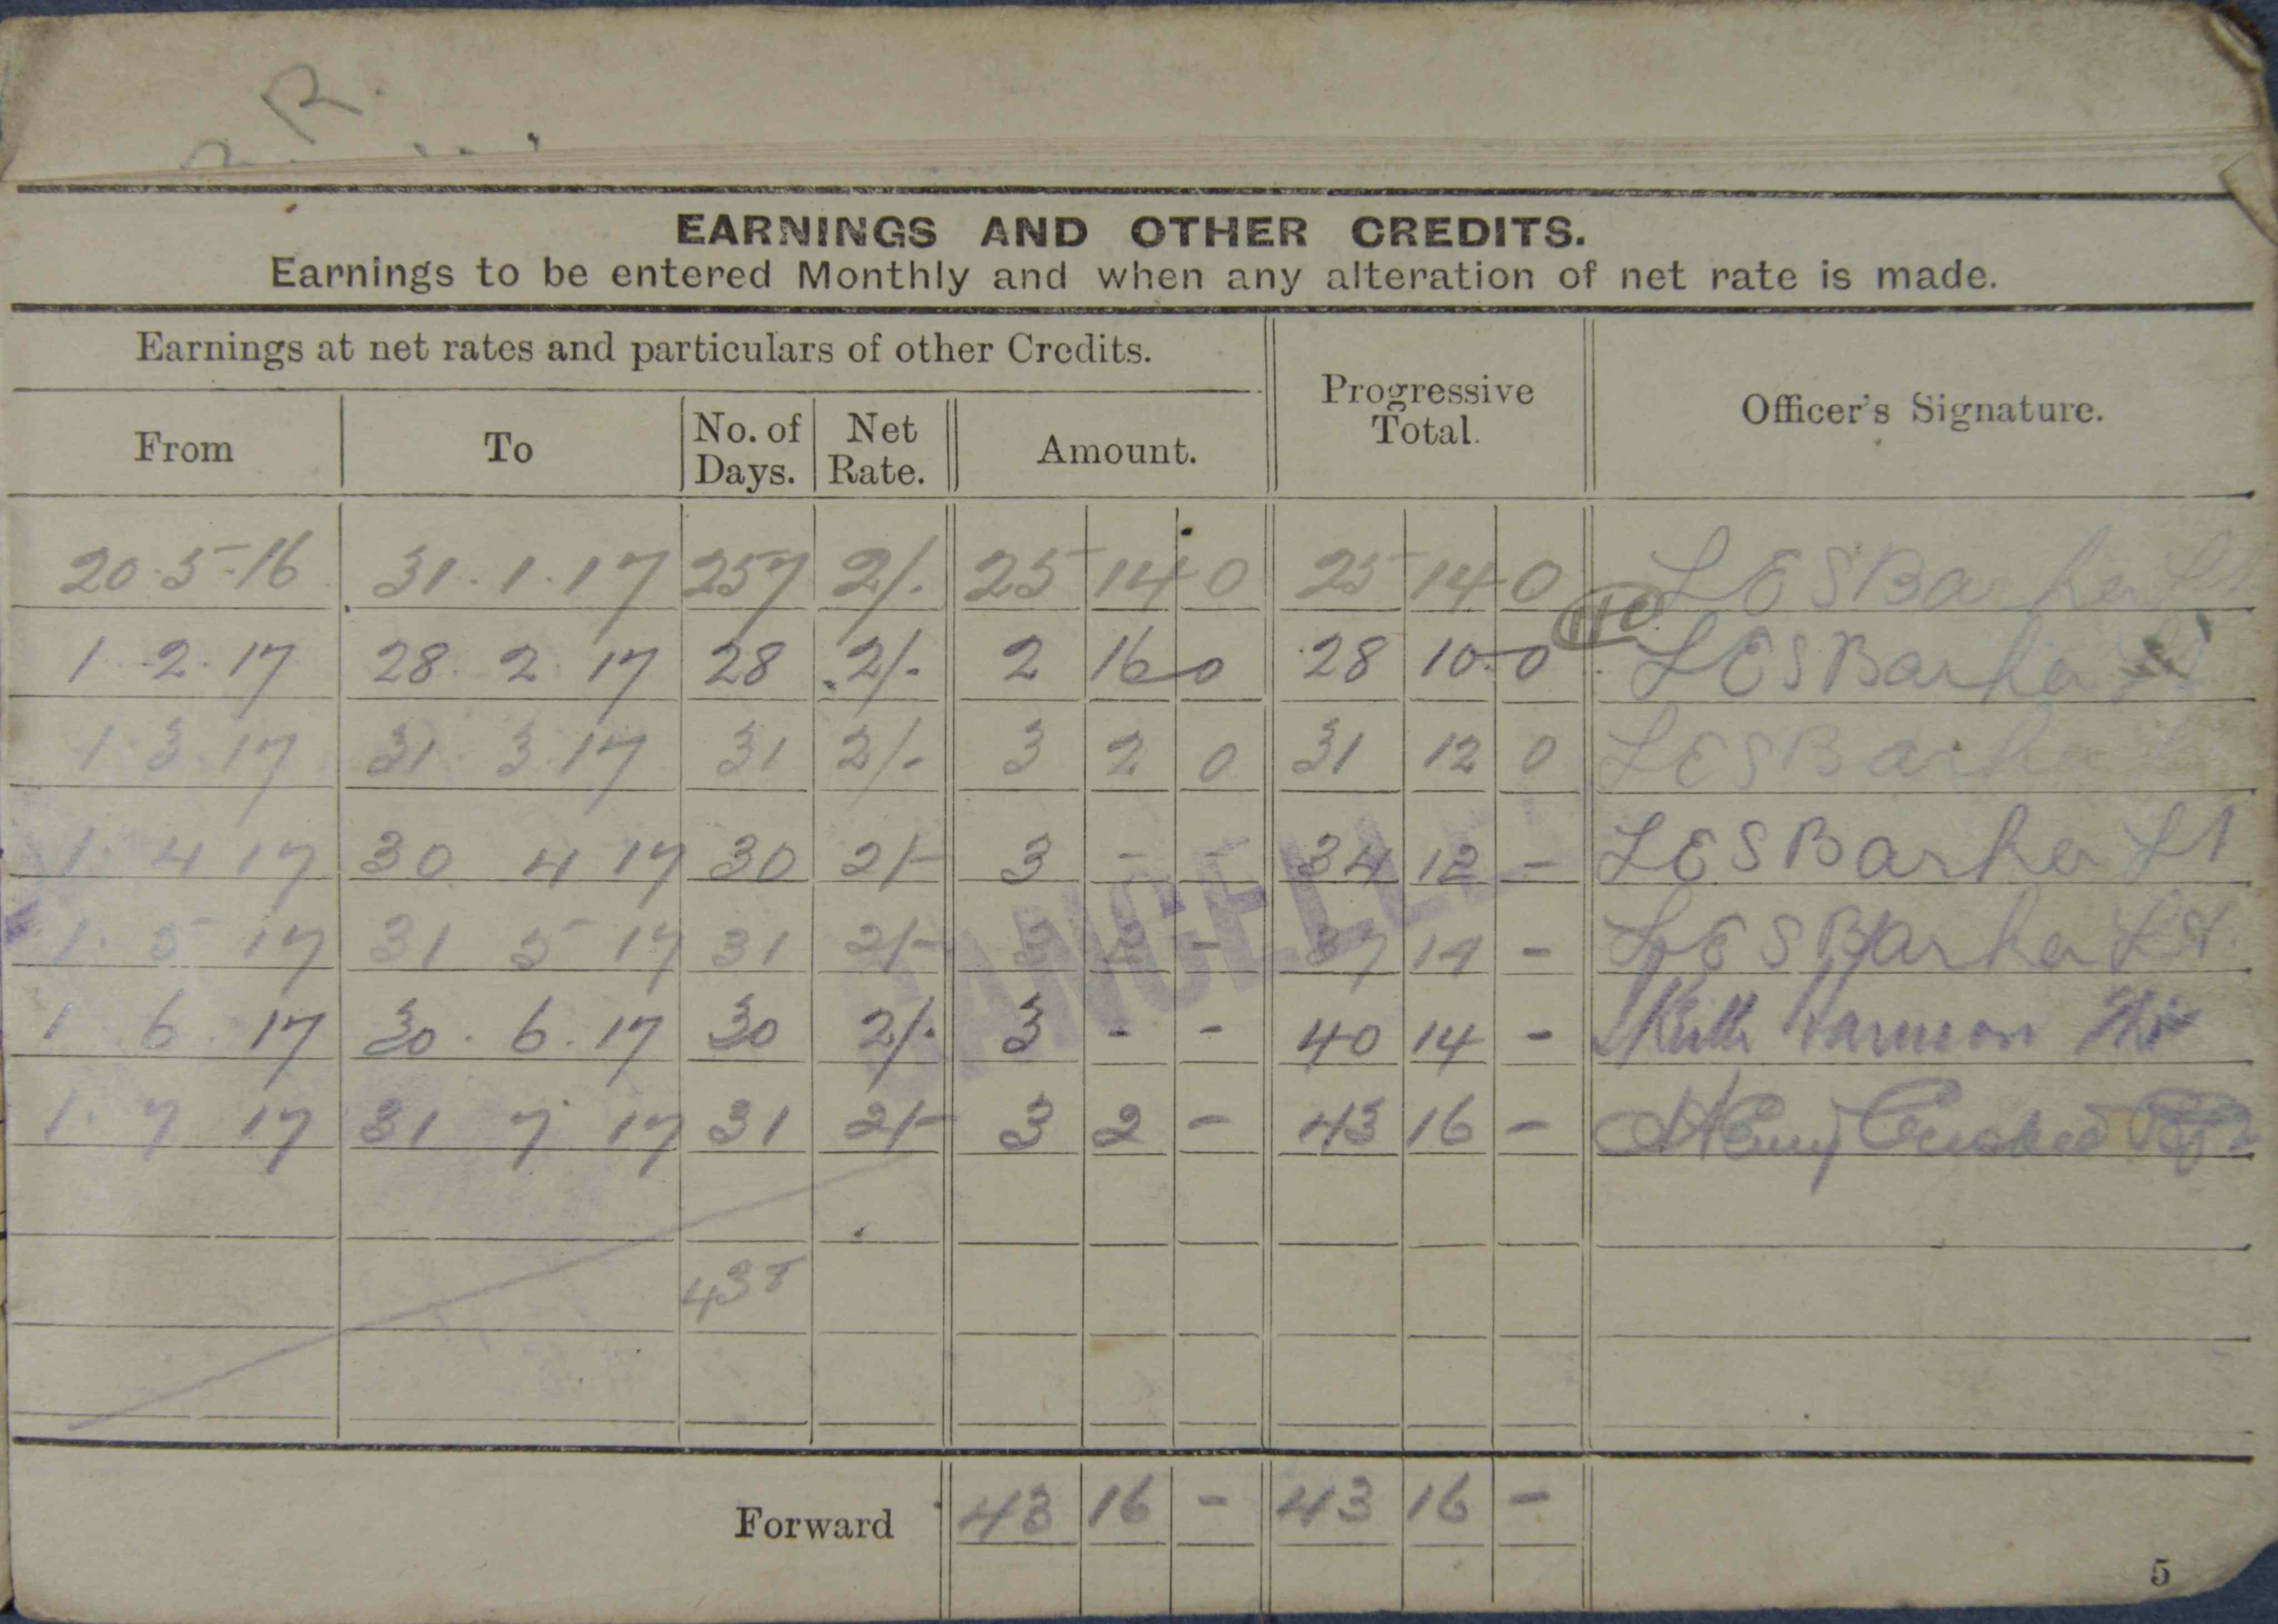 R.
EARNINGS AND OTHER CREDITS.
Earnings to be entered Monthly and when any alteration of net rate is made.
Earnings at net rates and particulars of other Credits.
Progressive Total.
Officer's Signature.
From To No. of Days. Net Rate. Amount.
20.5.16 31.1.17 257 2/. 25 14 0 25 14 0 L E S Barker Lt
1.2.17 28.2.17 28 2/. 2 16 0 28 10 0 L E S Barker Lt
1.3.17 31.3.17 31 2/- 3 2 0 31 12 0 L E S Barker
1.4.17 30 4 17 30 2/- 3 - - 34 12 - L E S Barker Lt
1.5 17 31 5 17 31 2/- 3 2 - 37 14 - L E S Barker Lt.
1 6.17 30.6.17 30 2/. 3 - - 40 14 -
1.7 17 31 7 17 31 2/- 3 2 - 43 16 -
CANCELLED
438
Forward 43 16 - 43 16 -
5